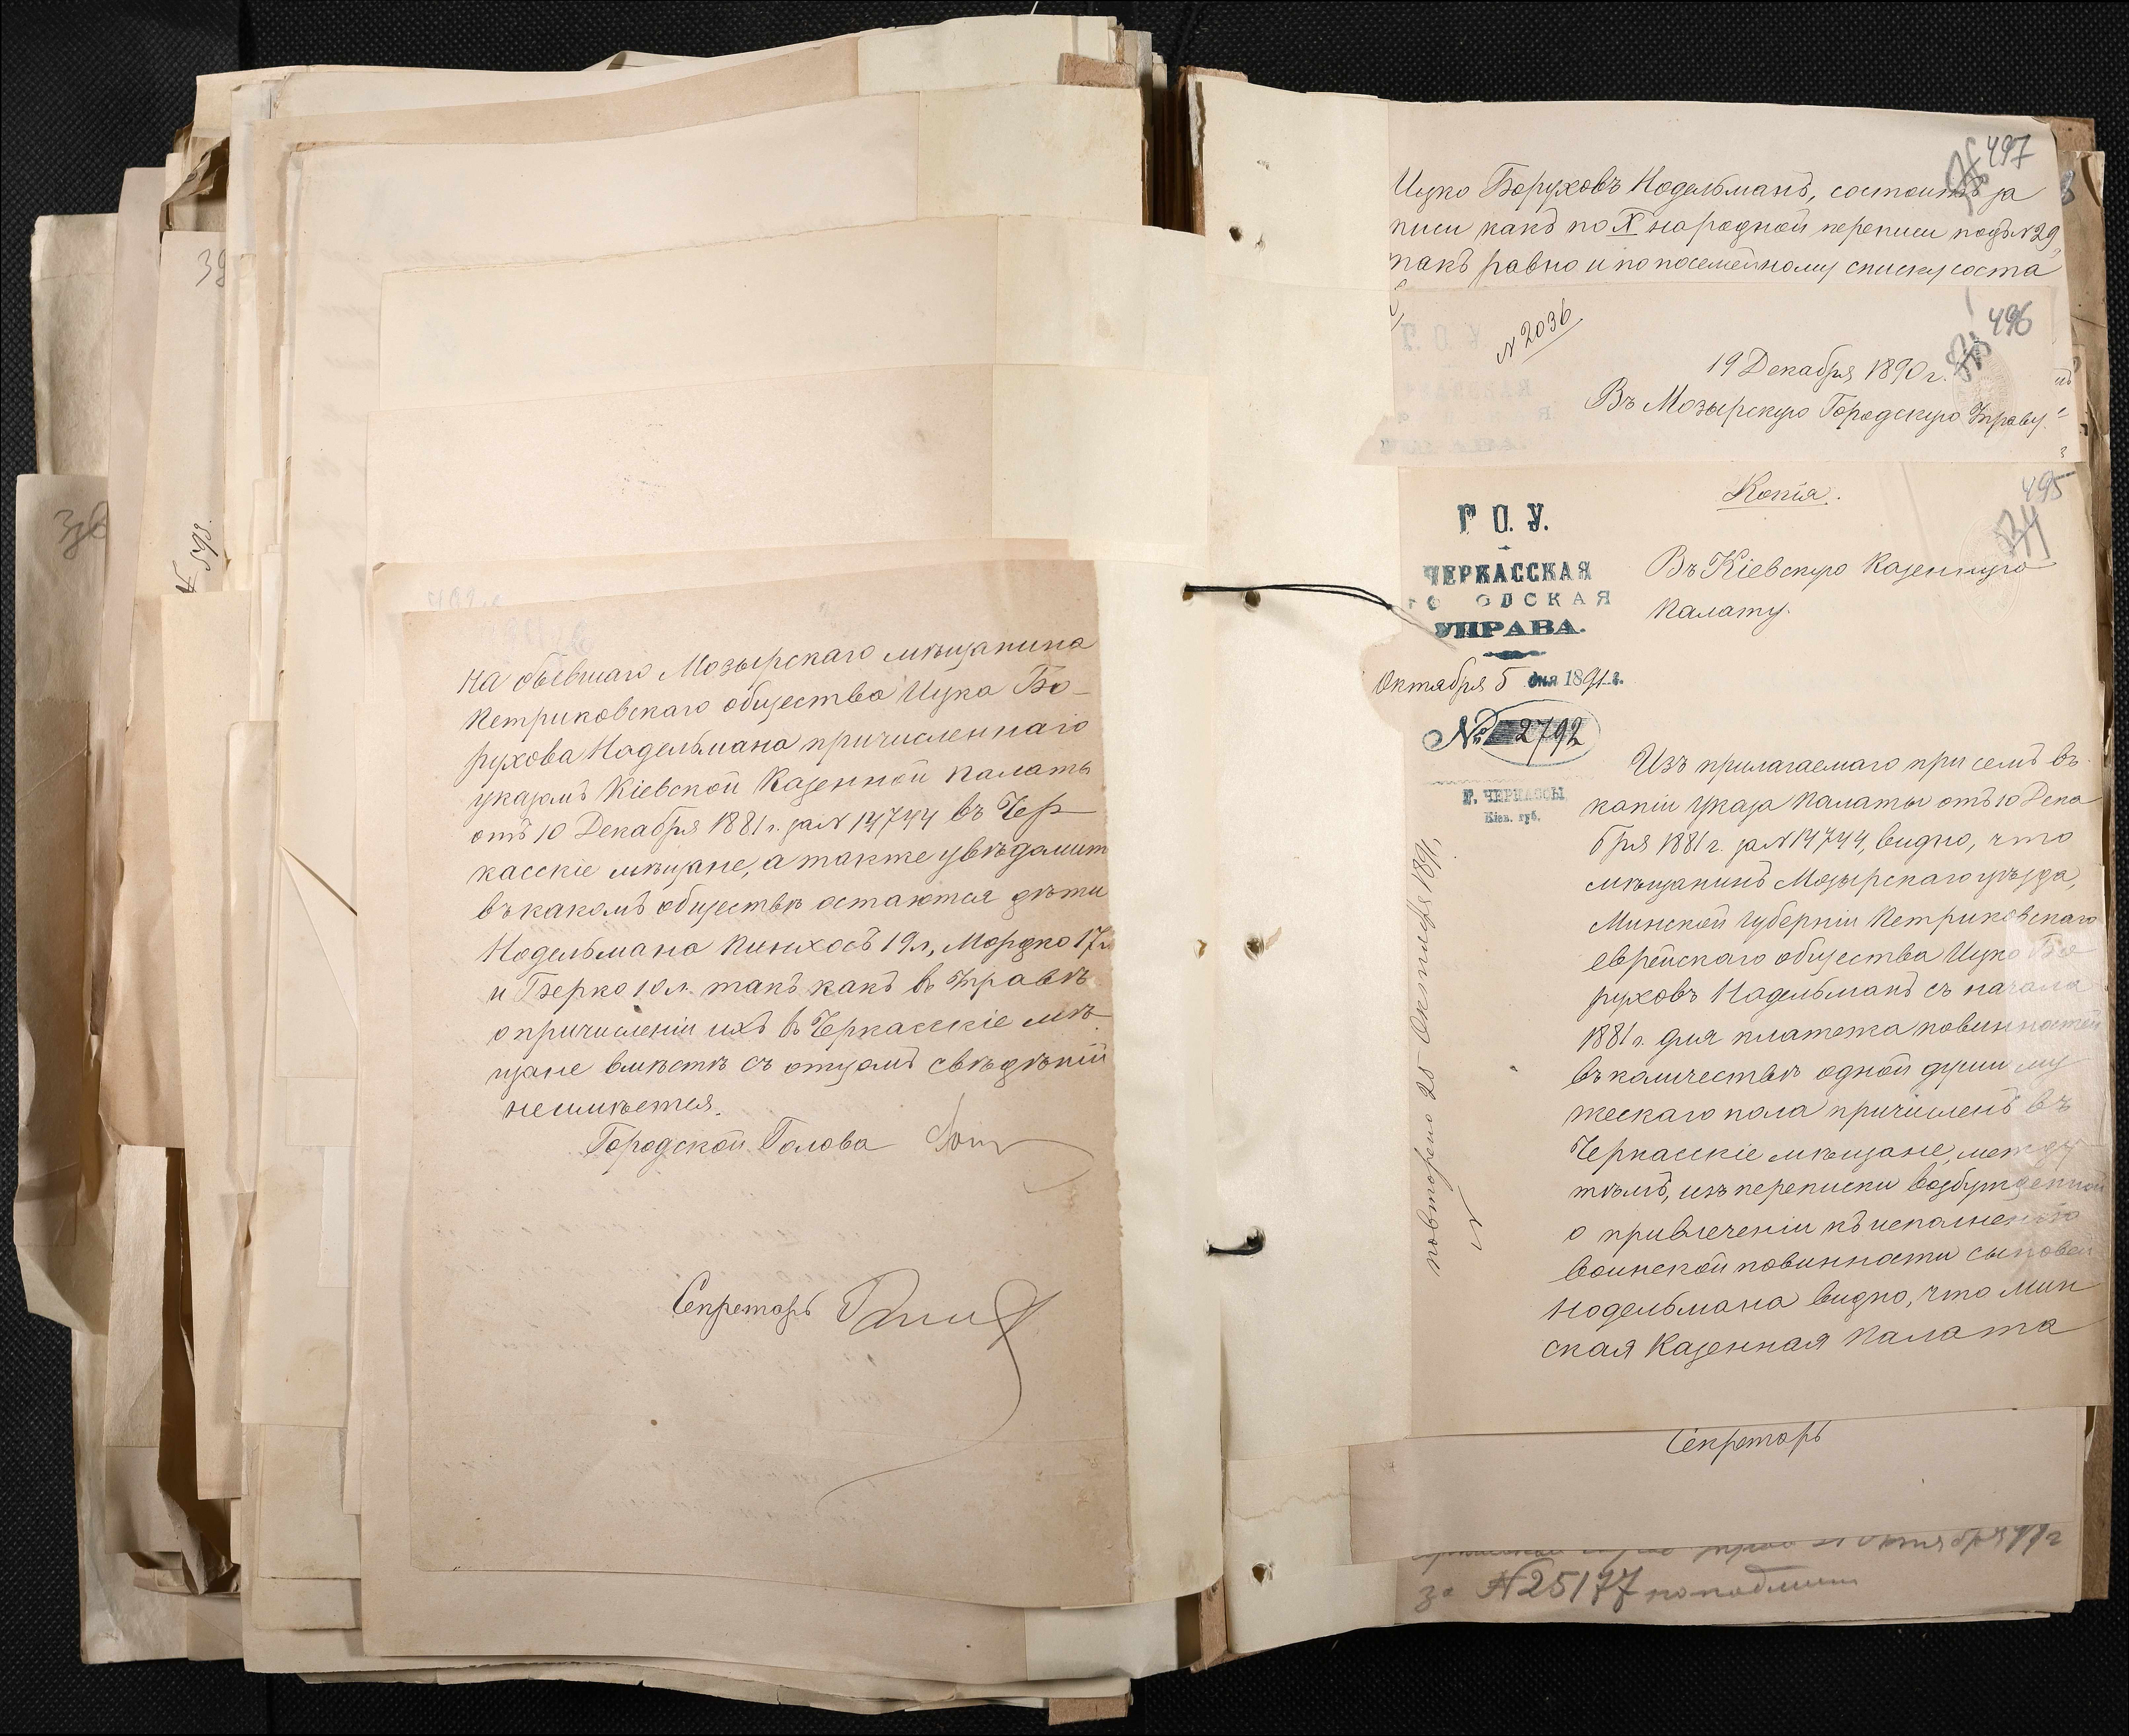 на бывшаго Мозырскаго мѣщанина
Петриковскаго общества Ицка Бо-
рухова Нодельмана причисленнаго
указомъ Кіевской Казенной Палаты
отъ 10 Декабря 1881 г. за № 14744 въ Чер-
касскіе мѣщане, а также увѣдомить
въ какомъ обществѣ остаются дѣти
Нодельмана Пинхосъ 19 л, Мордко 17 л
и Берко 10 л. такъ какъ въ Управѣ
о причисленіи ихъ въ Черкасскіе мѣ-
щане вмѣстѣ съ отцомъ свѣдѣній
неимѣется.
Городской Голова
Секретарь
497
Ицко Боруховъ Нодельманъ, состоитъ за
писи какъ по X народной переписи подъ № 29,
такъ равно и по посемейному списку соста
496
№ 2036
19 Декабря 1890 г.
Въ Мозырскую Городскую Управу
495
Копія.
Г. О. У.
ЧЕРКАССКАЯ
ГО ОДСКАЯ
УПРАВА.
Октября 5 дня 1891 г.
№ 2792
Г. ЧЕРКАССЫ
Кіев. губ.
Въ Кіевскую Казенную
Палату.
Изъ прилагаемаго при семъ въ
копіи указа Палаты отъ 10 Дека
бря 1881 г. за № 14744, видно, что
мѣщанинъ Мозырскаго уѣзда,
Минской губерніи Петриковскаго
еврейскаго общества Ицко Бо
руховъ Нодельманъ съ начала
1881 г. для платежа повинностей
въ количествѣ одной души му
жескаго пола причисленъ въ
Черкасскіе мѣщане, между
тѣмъ, изъ переписки возбужденной
о привлеченіи къ исполненію
воинской повинности сыновей
Нодельмана видно, что Мин
ская Казенная Палата
повторено 25 Октября 1891
№
Секретарь
за № 25177
39
398